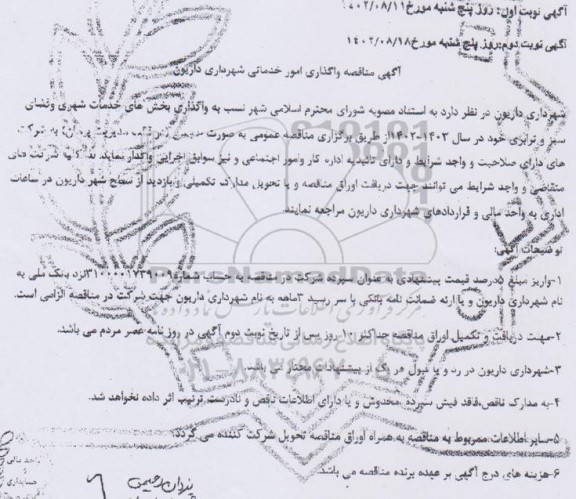 آگهی نوبت اول: روز پنج شنبه مورخ ۱۴۰۲/۰۸/۱۱
آگهی نوبت دوم: روز پنج شنبه مورخ ۱۴۰۲/۰۸/۱۸
آگهی مناقصه واگذاری امور خدماتی شهرداری داریون
شهرداری داریون در نظر دارد به استناد مصوبه شورای محترم اسلامی شهر نسب به واگذاری بخش های خدمات شهری وفضای
سبز و ترابری خود در سال ۱۴۰۳-۱۴۰۲ از طریق برگزاری مناقصه عمومی به صورت به شرکت
های دارای صلاحیت و واجد شرایط و دارای تائیدیه اداره کار وامور اجتماعی و نیز سوابق اجرایی واگذار نماید. لذا کلیه شرکت های
متقاضی و واجد شرایط می توانند جهت دریافت اوراق مناقصه و یا تحویل مدارک تکمیلی و بازدید از سطح شهر داریون در ساعات
اداری به واحد مالی و قراردادهای شهرداری داریون مراجعه نمایند.
توضیحات آگهی:
۱-واریز مبلغ ۵درصد قیمت پیشنهادی به عنوان سپرده شرکت در مناقصه به حساب شماره نزد بانک ملی به
نام شهرداری داریون و یا ارئه ضمانت نامه بانکی با سر رسید ۳ماهه به نام شهرداری داریون جهت شرکت در مناقصه الزامی است.
۲-مهلت دریافت و تکمیل اوراق مناقصه حداکثر ۱۰ روز پس از تاریخ نوبت دوم آگهی در روز نامه عصر مردم می باشد.
۳-شهرداری داریون در رد و یا قبول هر یک از پیشنهادات مختار می باشد.
۴-به مدارک ناقص،فاقد فیش سپرده، مخدوش و یا دارای اطلاعات ناقص و نادرست ترتیب اثر داده نخواهد شد.
۵-سایر اطلاعات مربوط به مناقصه به همراه اوراق مناقصه تحویل شرکت کننده می گردد.
۶-هزینه های درج آگهی بر عهده برنده مناقصه می باشد.
ParsNamadData
۰۲۱-۸۸۳۴۹۶۷۰
واحد مالی
حسابداری